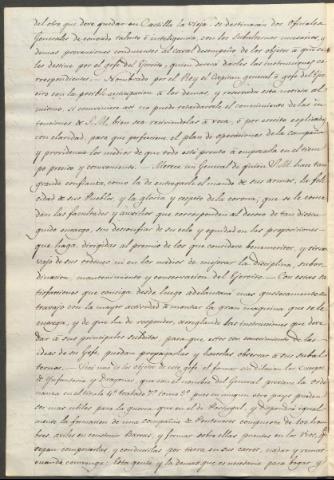 del otro que debe quedar en Castilla la Vieja, se destinaran dos Oficiales
Generales de conocido talento é inteligencia, con los subalternos necesarios, y
demas provisiones conducentes al cabal desempeño de los objetos á que se
les destine por el gefe del Exercito, quien deverá darles las instrucciones co-
rrespondientes. Nombrado por el Rey el Capitan general ó gefe del Exer-
cito con la posible anticipacion á los demas, y
mismo, si conviniere asi no puede retardarsele el conocimiento de las in-
tenciones de S.M. bien sea revelandoselas á voca, ó por escrito explicado
con claridad, para que proporcione el plan de operaciones de la campaña
y providencie los medios de que todo esté pronto á emprenderla en el tiem-
po preciso y conveniente. Merece un General de quien S.M. hace tan
grande confianza, como la de entregarle el mando de sus armas, la feli-
cidad de sus Pueblos, y la gloria y respeto de la corona, que se le conce-
dan las facultades y auxilios que corresponden al deseo de tan distin-
guido encargo, sin desconfiar de su celo y equidad en las proposiciones
que haga, dirigidas al premio de los que considere benemeritos, y
de sus ordenes ni en los medios de mejorar la disciplina, subor-
dinacion, mantenimiento y conservacion del Exercito. Con estas sa-
tisfacciones que consiga desde luego adelantará mas gustosamente su
trabajo con la mayor actividad á montar la gran maquina que se le
encarga, y de que ha de responder, arreglando las instrucciones que deve
dar á sus principales subditos, para que estos con conocimiento de las
ideas de su Gefe, puedan propagarlas y hacerlas observar á sus subal-
ternos. Será uno de los objetos de este gefe el formar
de Ynfanteria y Dragones, que con el nombre del General previene la orde-
nanza en el titulo 4º tratado 7º tomo 3º pues en ningun otro pays pueden
ser mas utiles para la guerra que en el de Portugal, y dependerá igual-
mente la formacion de una compañia de Pontoneros compuesta de los hom-
bres, habiles en construir Barcas, y formar sobre ellas puentes en los rios, q.e
sepan componerlas, y conducirlas por tierra en sus carros, viajar y remar
quando convenga: Esta gente y la demas que es necesaria para hogar y